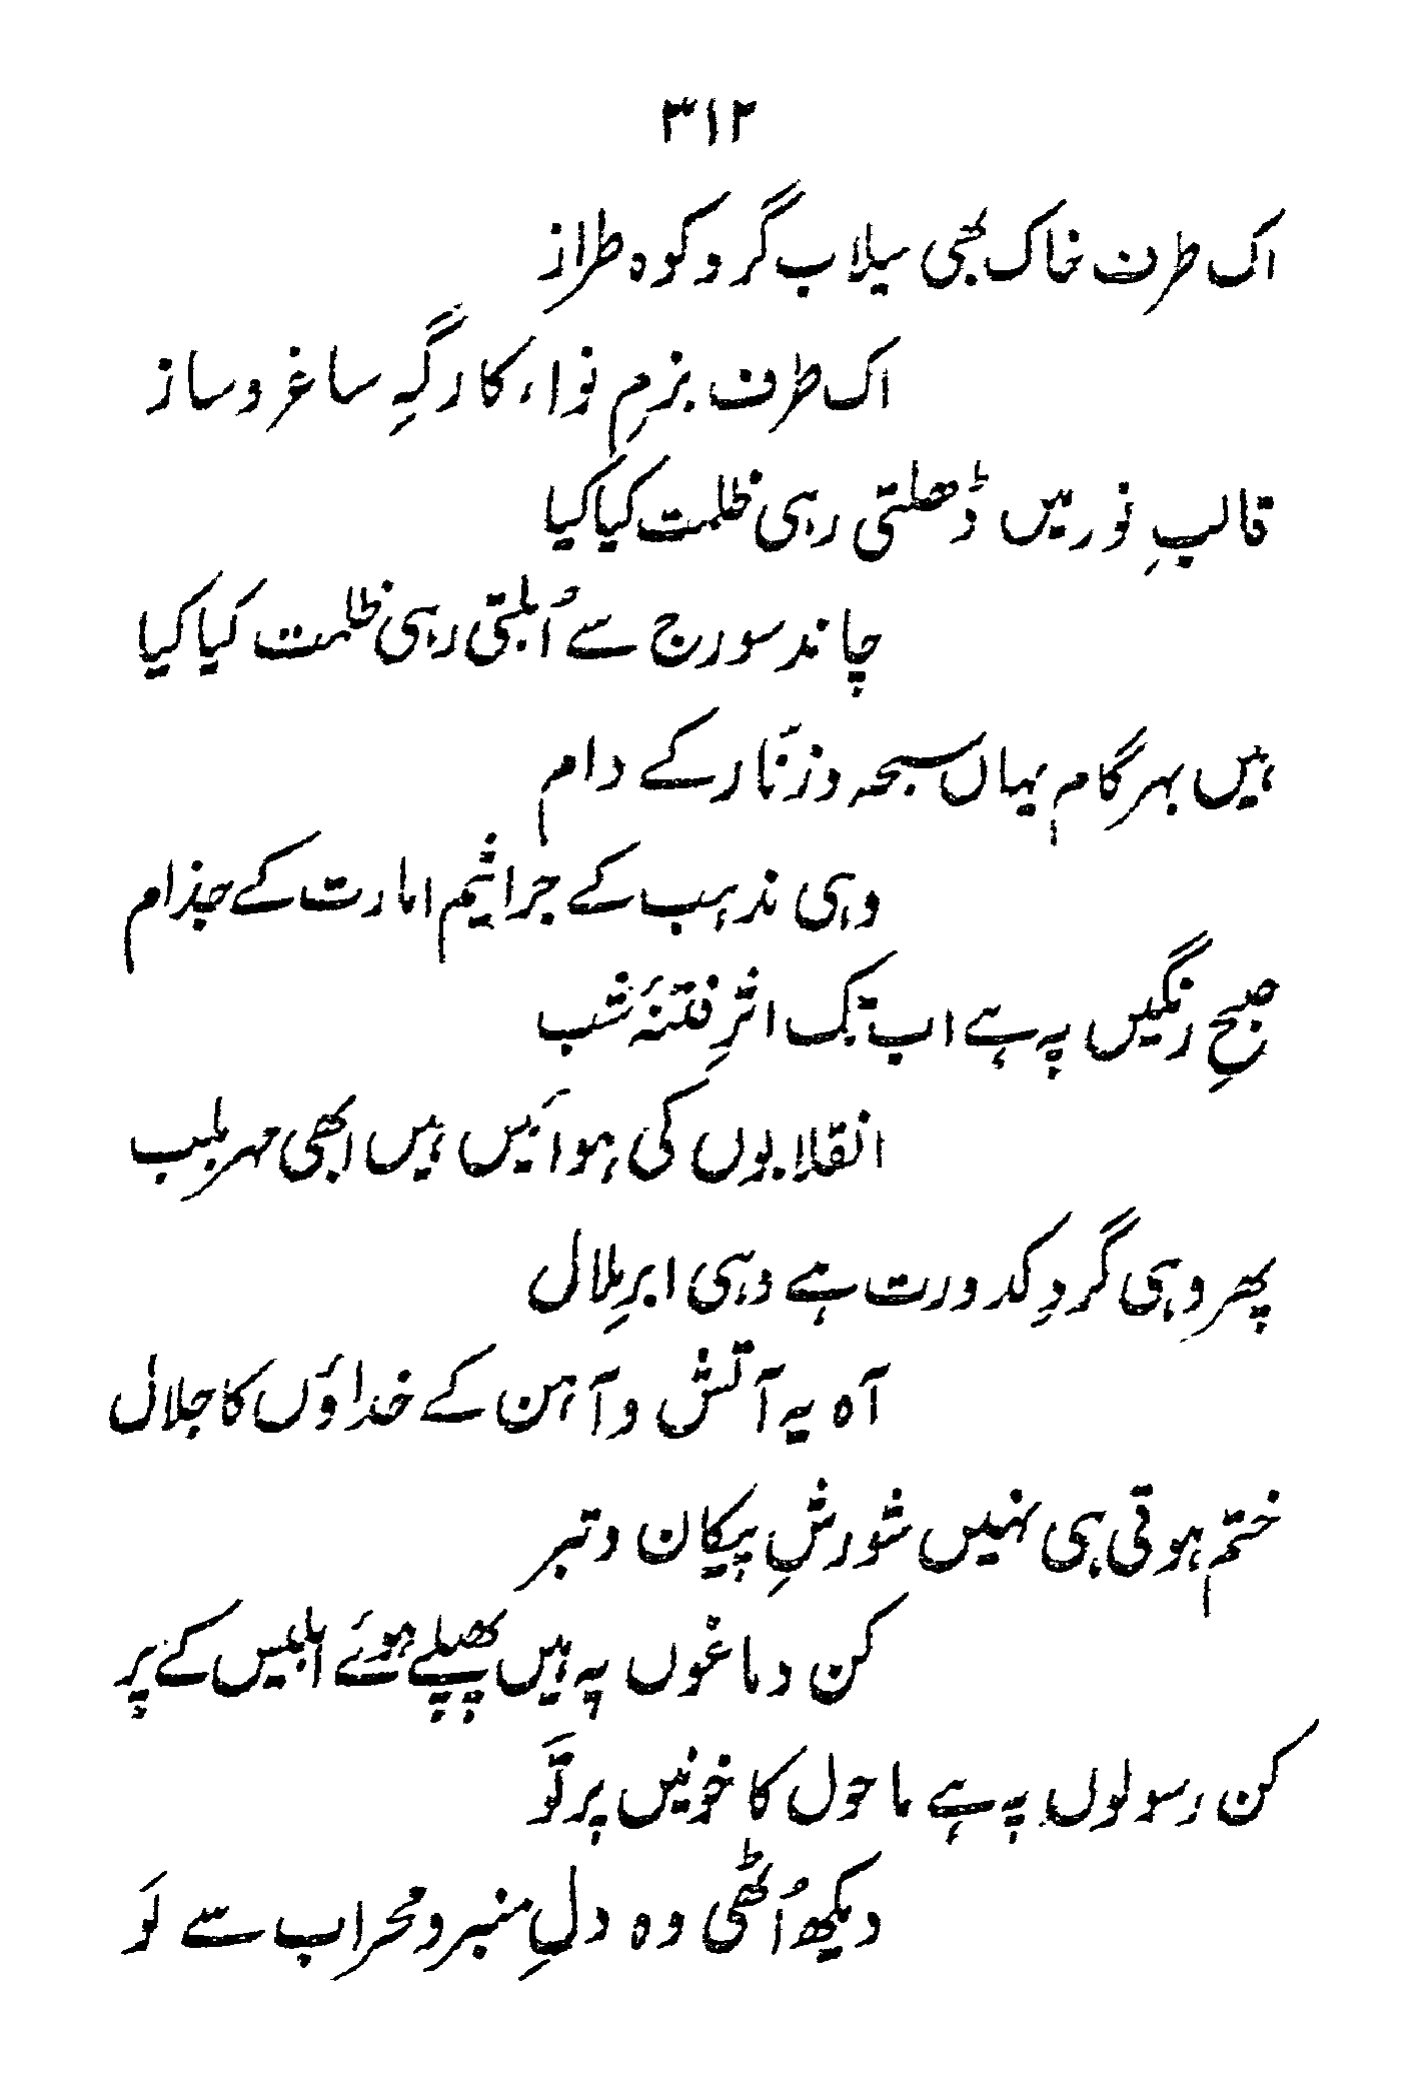 ۳۱۲
اک طرف خاک بھی سیلاب گر و کوہ طراز
اک طرف بزمِ نوا، کارگہِ ساغر و ساز
قالبِ نور میں ڈھلتی رہی ظلمت کیا کیا
چاند سورج سے اُبلتی رہی ظلمت کیا کیا
ہیں بہر گام یہاں سبحہ و زنّار کے دام
وہی مذہب کے جراثیم امارت کے جذام
صبحِ رنگیں پہ ہے اب تک اثرِ فتنۂ شب
انقلابوں کی ہوائیں ہیں ابھی مہر بلب
پھر وہی گردِ کدورت ہے وہی ابرِ ملال
آہ یہ آتش و آہن کے خداؤں کا جلال
ختم ہوتی ہی نہیں شورشِ پیکان و تبر
کن دماغوں پہ ہیں پھیلے ہوئے ابلیس کے پر
کن رسولوں پہ ہے ماحول کا خونیں پرتَو
دیکھ اُٹھی وہ دلِ منبر و محراب سے لَو